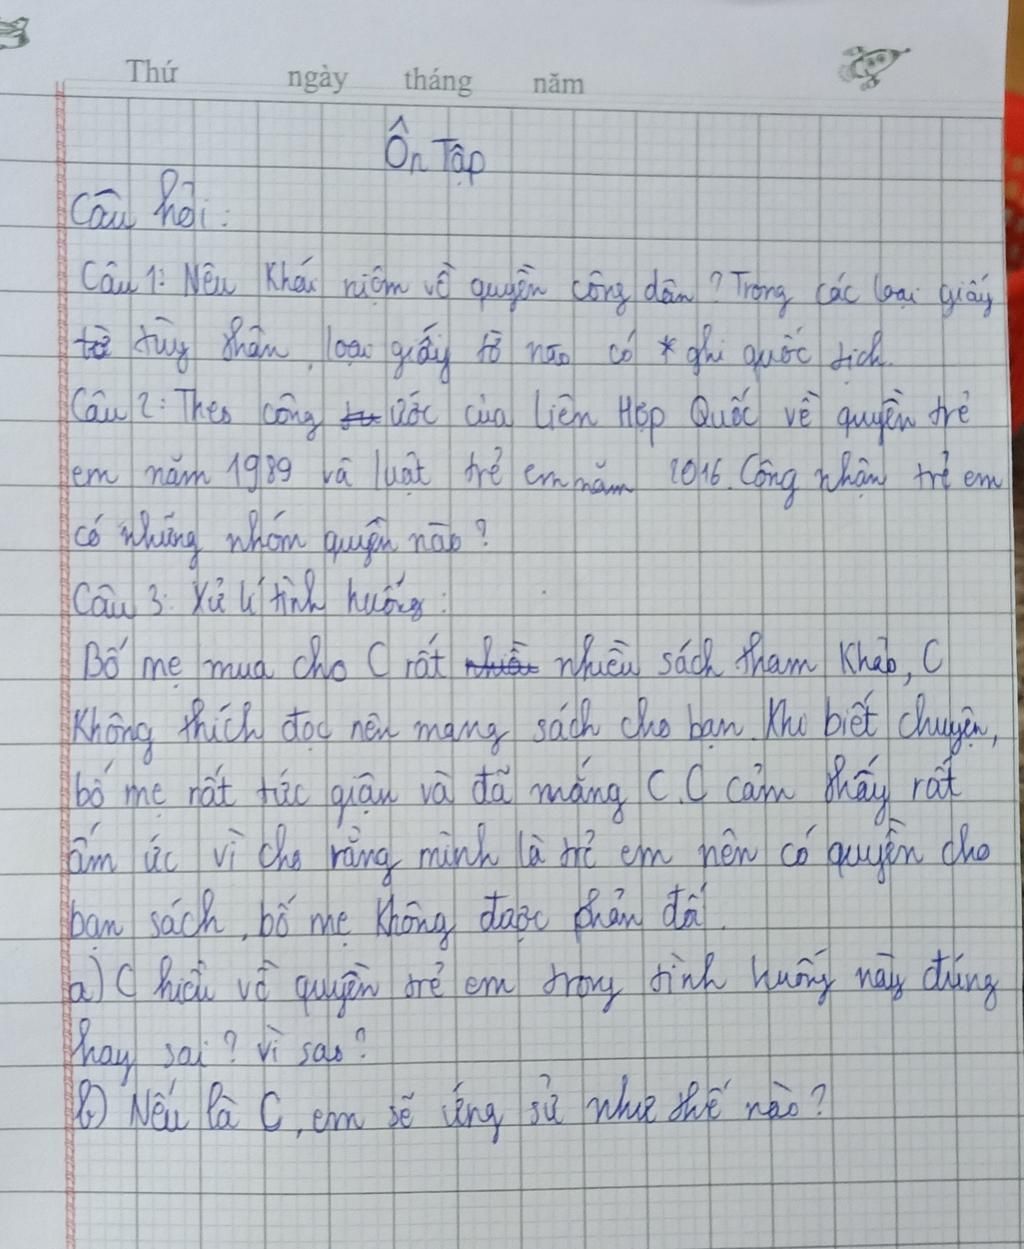 Thứ ngày tháng năm
Ôn Tập
Câu hỏi:
Câu 1: Nêu Khái niệm về quyền công dân? Trong các loại giấy
tờ tùy thân, loại giấy tờ nào có * ghi quốc tịch.
Câu 2: Theo công ước của Liên Hợp Quốc về quyền trẻ
em năm 1989 và luật trẻ em năm 2016. Công nhận trẻ em
có những nhóm quyền nào?
Câu 3: Xử lí tình huống:
Bố mẹ mua cho C rất nhiều sách tham Khảo, C
Không thích đọc nên mang sách cho bạn. Khi biết chuyện,
bố mẹ rất tức giận và đã mắng C. C cảm thấy rất
ấm ức vì cho rằng mình là trẻ em nên có quyền cho
bạn sách, bố mẹ Không được phản đối.
a) C hiểu về quyền trẻ em trong tình huống này đúng
hay sai? vì sao?
b) Nếu là C, em sẽ ứng sử như thế nào?